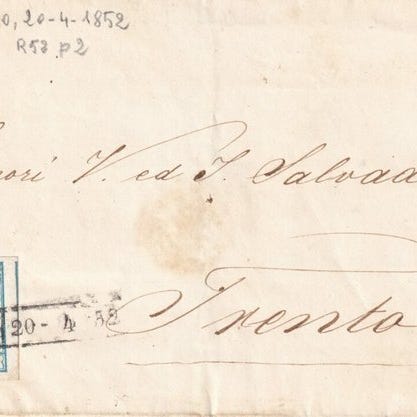 0, 20-4-1852
R53 p2
ori V. ed I. Salvad
Trento
20 - 4 52